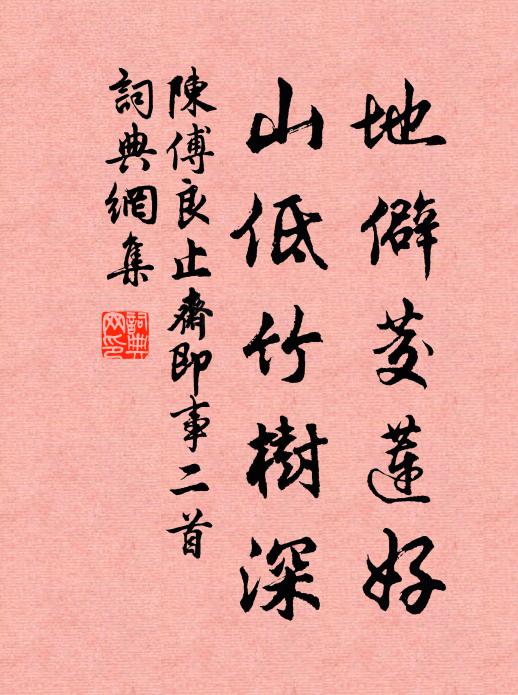 地僻芰蓮好
山低竹樹深
陳傅良止齋即事二首
詞典網集
詞典網印